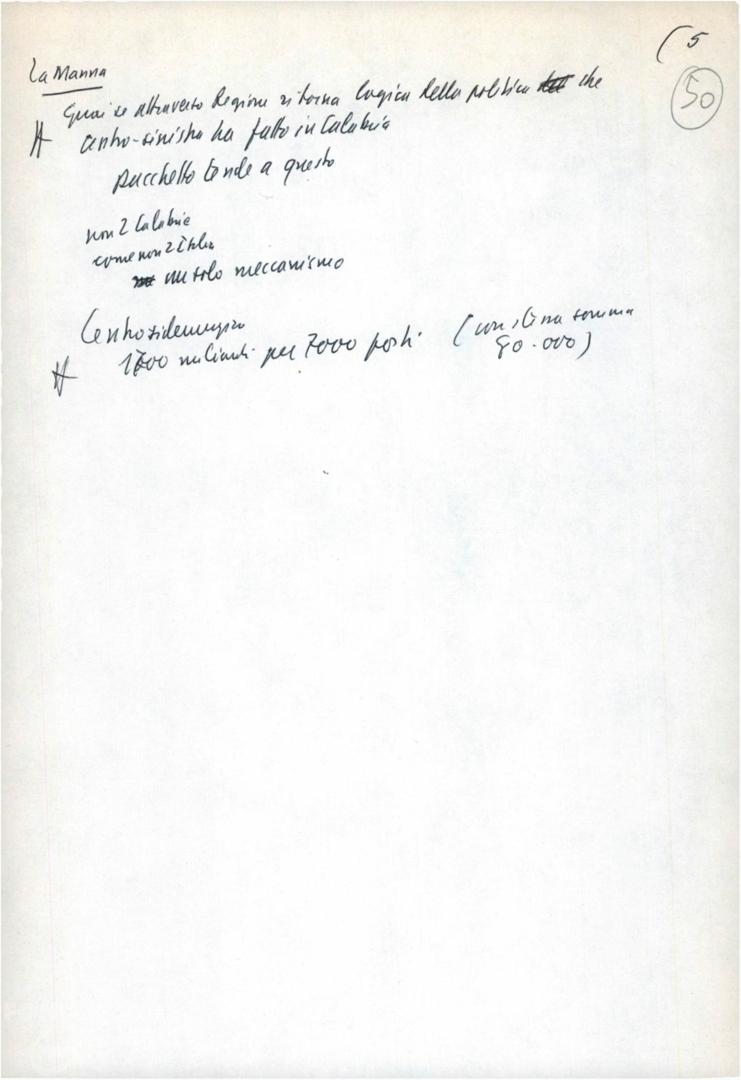 ( 5
50
La Manna
Guai se attraverso Regione ritorna logica della politica che
centro-sinistra ha fatto in Calabria
pacchetto tende a questo
non 2 Calabrie
come non 2 Italie
un solo meccanismo
Centro siderurgico
1700 miliardi per 7000 posti (con stessa somma
90.000)